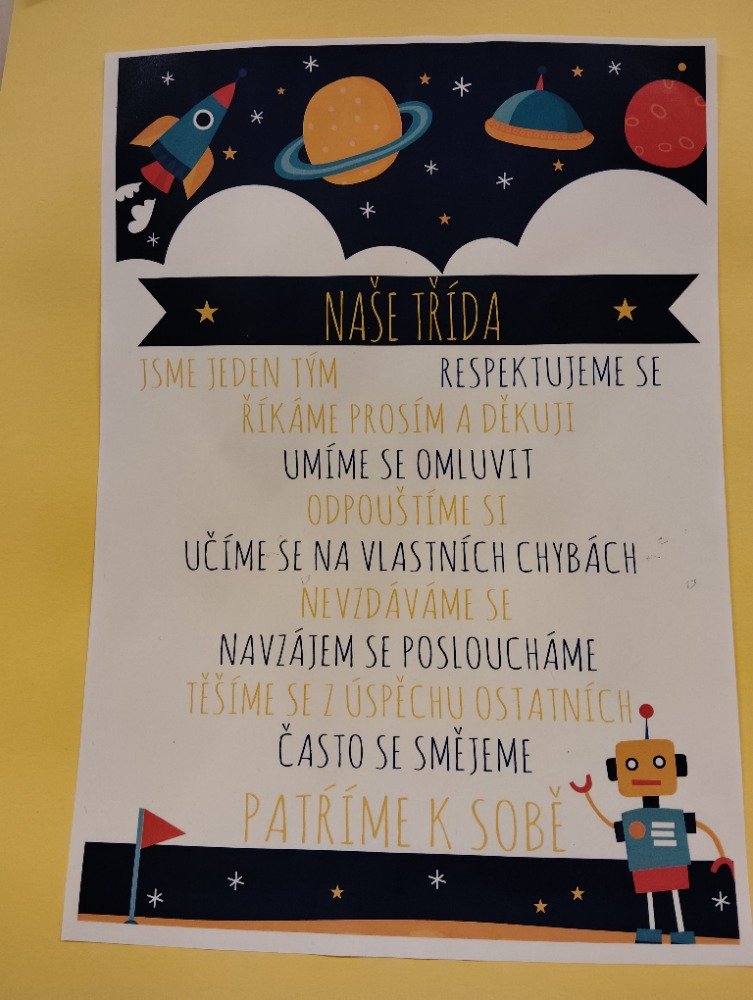 NAŠE TŘÍDA
JSME JEDEN TÝM RESPEKTUJEME SE
ŘÍKÁME PROSÍM A DĚKUJI
UMÍME SE OMLUVIT
ODPOUŠTÍME SI
UČÍME SE NA VLASTNÍCH CHYBÁCH
NEVZDÁVÁME SE
NAVZÁJEM SE POSLOUCHÁME
TĚŠÍME SE Z ÚSPĚCHU OSTATNÍCH
ČASTO SE SMĚJEME
PATŘÍME K SOBĚ